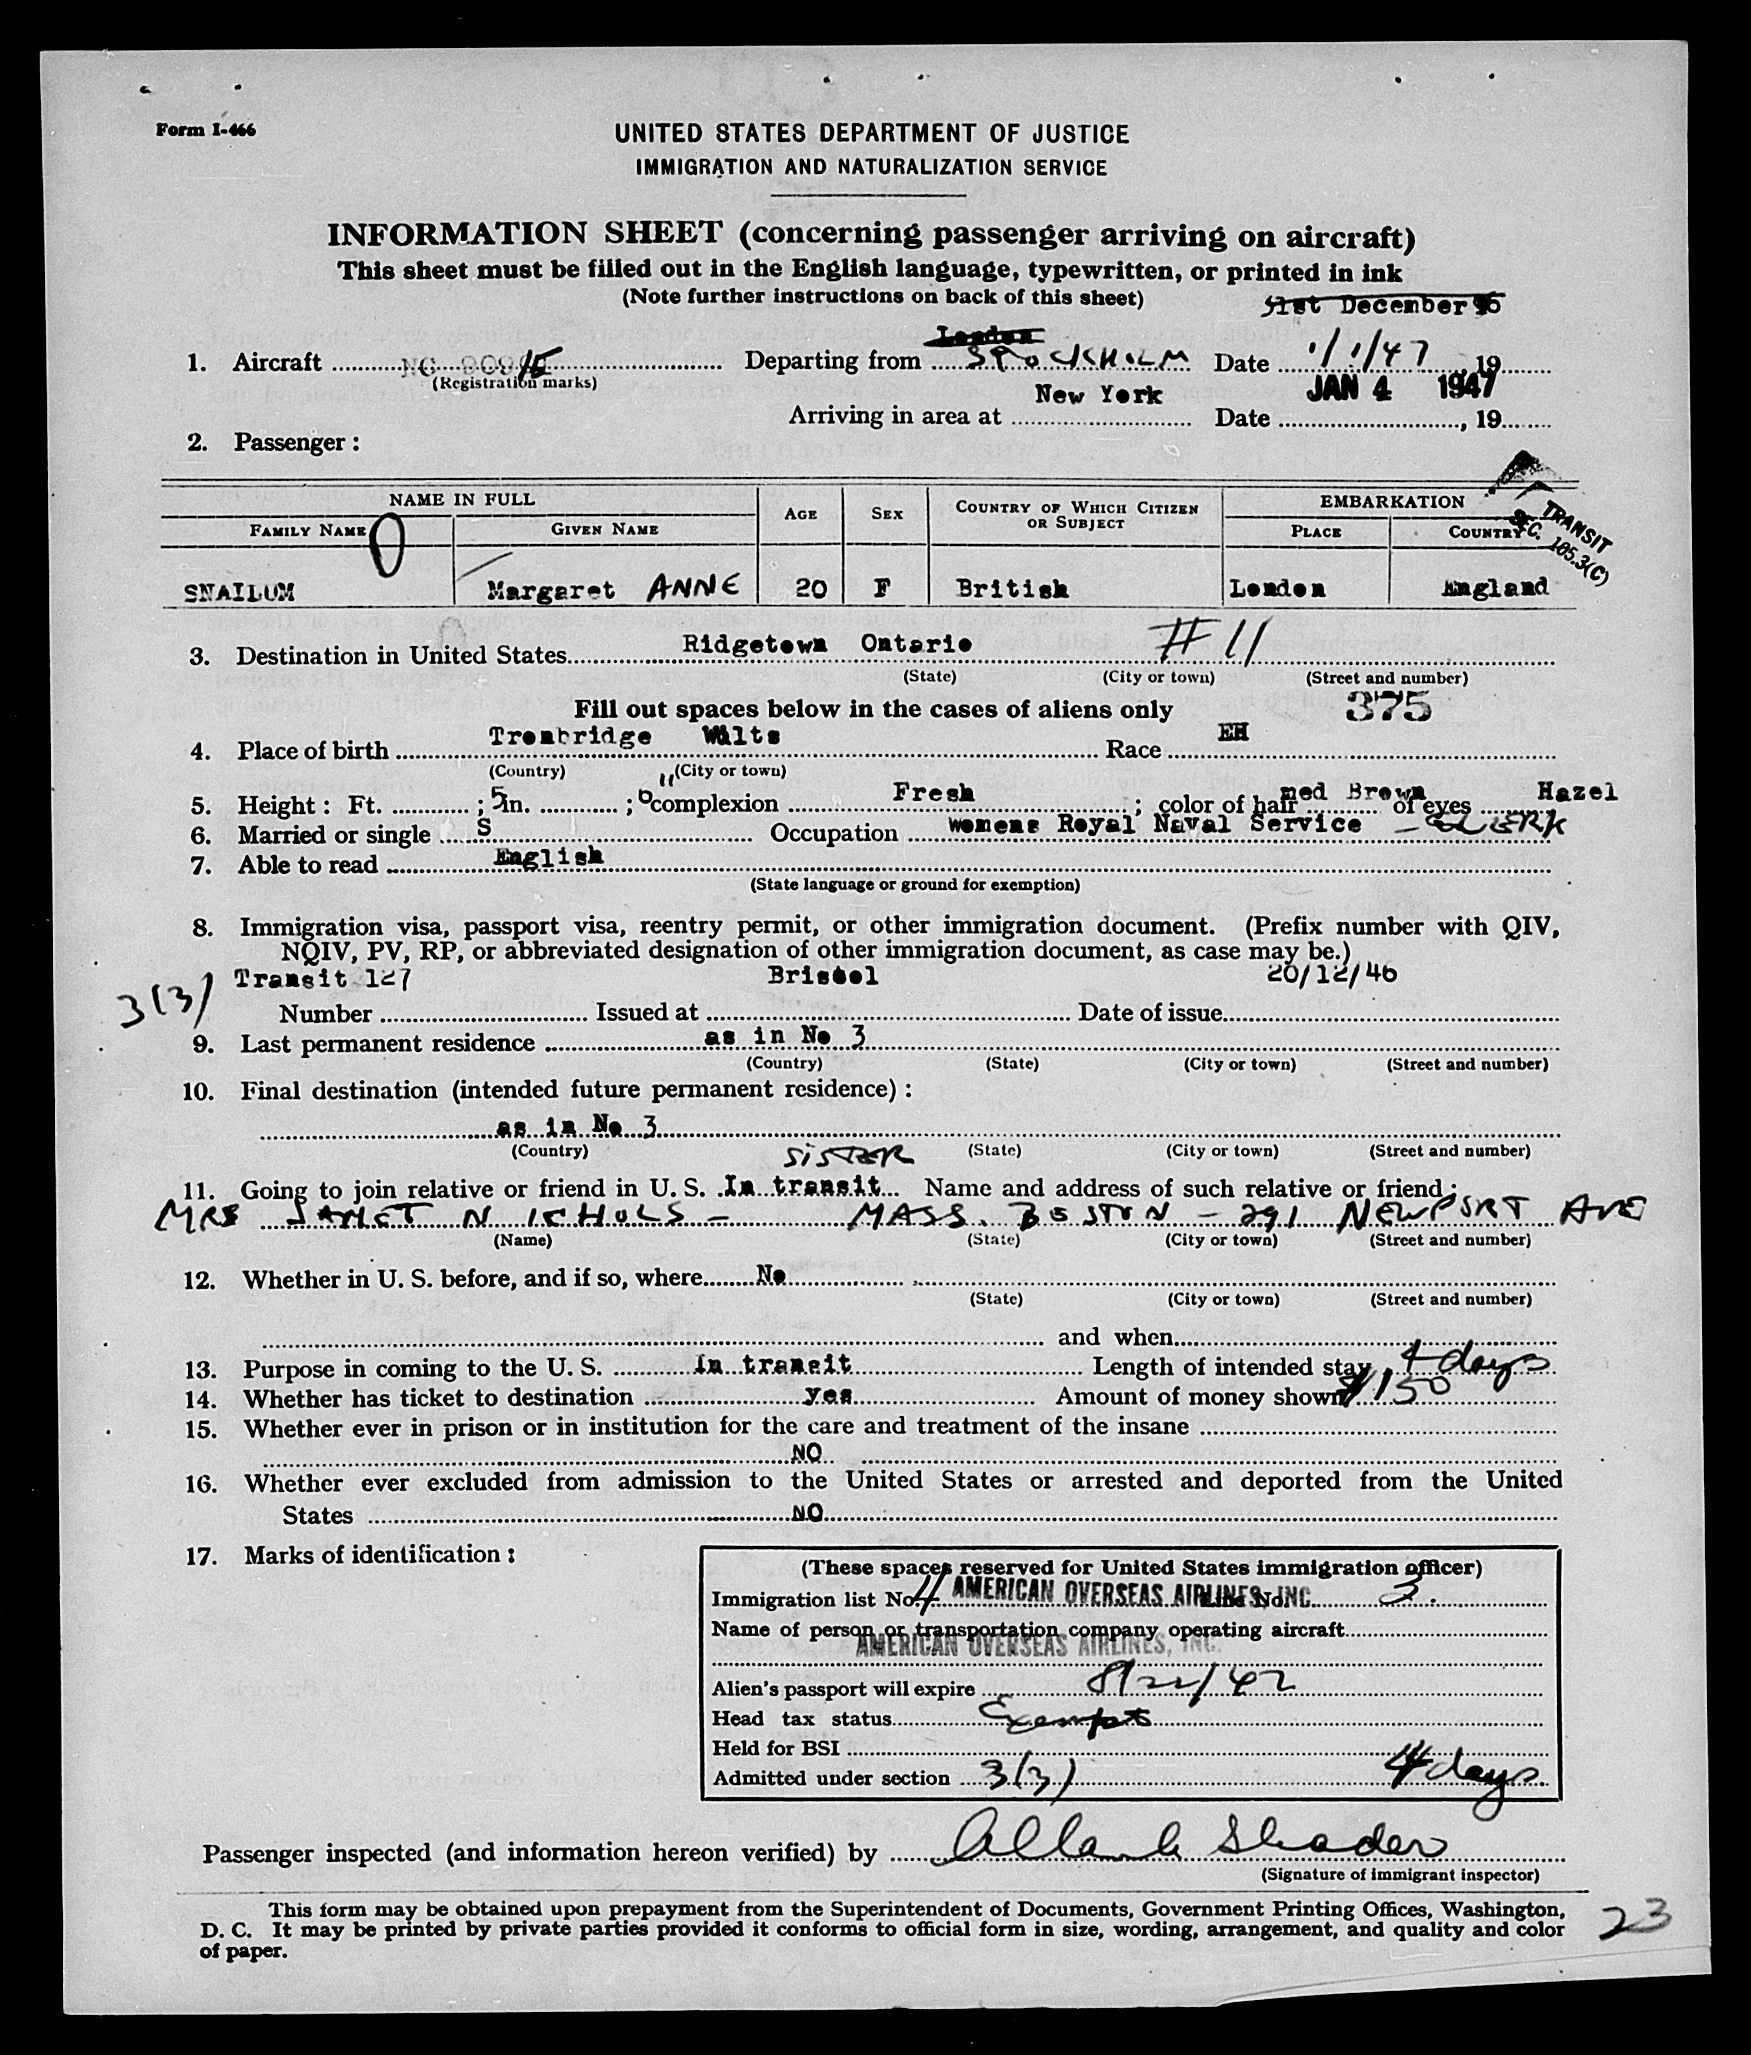 Form I-466
UNITED STATES DEPARTMENT OF JUSTICE
IMMIGRATION AND NATURALIZATION SERVICE
INFORMATION SHEET (concerning passenger arriving on aircraft)
This sheet must be filled out in the English language, typewritten, or printed in ink
(Note further instructions on back of this sheet)
31st December 46
London
1. Aircraft NC Departing from STOCKHOLM Date 1/1/47, 19
(Registration marks)
New York JAN 4 1947
Arriving in area at Date , 19
2. Passenger:
NAME IN FULL AGE SEX COUNTRY OF WHICH CITIZEN OR SUBJECT EMBARKATION
FAMILY NAME GIVEN NAME PLACE COUNTRY
TRANSIT
SEC. 105.3(C)
SNAILUM Margaret ANNE 20 F British London England
3. Destination in United States Ridgetown Ontario #11
(State) (City or town) (Street and number)
Fill out spaces below in the cases of aliens only 375
4. Place of birth Trowbridge Wilts Race EH
(Country) (City or town)
5. Height: Ft. ; 5 in. ; complexion Fresh ; color of hair med Brown of eyes Hazel
6. Married or single S Occupation womens Royal Naval Service - CLERK
7. Able to read English
(State language or ground for exemption)
8. Immigration visa, passport visa, reentry permit, or other immigration document. (Prefix number with QIV,
NQIV, PV, RP, or abbreviated designation of other immigration document, as case may be.)
3(3) Transit 127 Bristol 20/12/46
Number Issued at Date of issue
9. Last permanent residence as in No 3
(Country) (State) (City or town) (Street and number)
10. Final destination (intended future permanent residence):
as in No 3
(Country) (State) (City or town) (Street and number)
SISTER
11. Going to join relative or friend in U. S. In transit Name and address of such relative or friend:
MRS JANET NICHOLS - MASS. BOSTON - 291 NEWPORT AVE
(Name) (State) (City or town) (Street and number)
12. Whether in U. S. before, and if so, where No
(State) (City or town) (Street and number)
and when
13. Purpose in coming to the U. S. In transit Length of intended stay 4 days
14. Whether has ticket to destination yes Amount of money shown $150
15. Whether ever in prison or in institution for the care and treatment of the insane
NO
16. Whether ever excluded from admission to the United States or arrested and deported from the United
States NO
17. Marks of identification:
(These spaces reserved for United States immigration officer)
Immigration list No. 4 AMERICAN OVERSEAS AIRLINES, INC. Line No. 3.
Name of person or transportation company operating aircraft
AMERICAN OVERSEAS AIRLINES, INC.
Alien's passport will expire 8/22/47
Head tax status Exempt
Held for BSI
Admitted under section 3(3) 4 days
Passenger inspected (and information hereon verified) by
(Signature of immigrant inspector)
This form may be obtained upon prepayment from the Superintendent of Documents, Government Printing Offices, Washington,
D. C. It may be printed by private parties provided it conforms to official form in size, wording, arrangement, and quality and color
of paper.
23